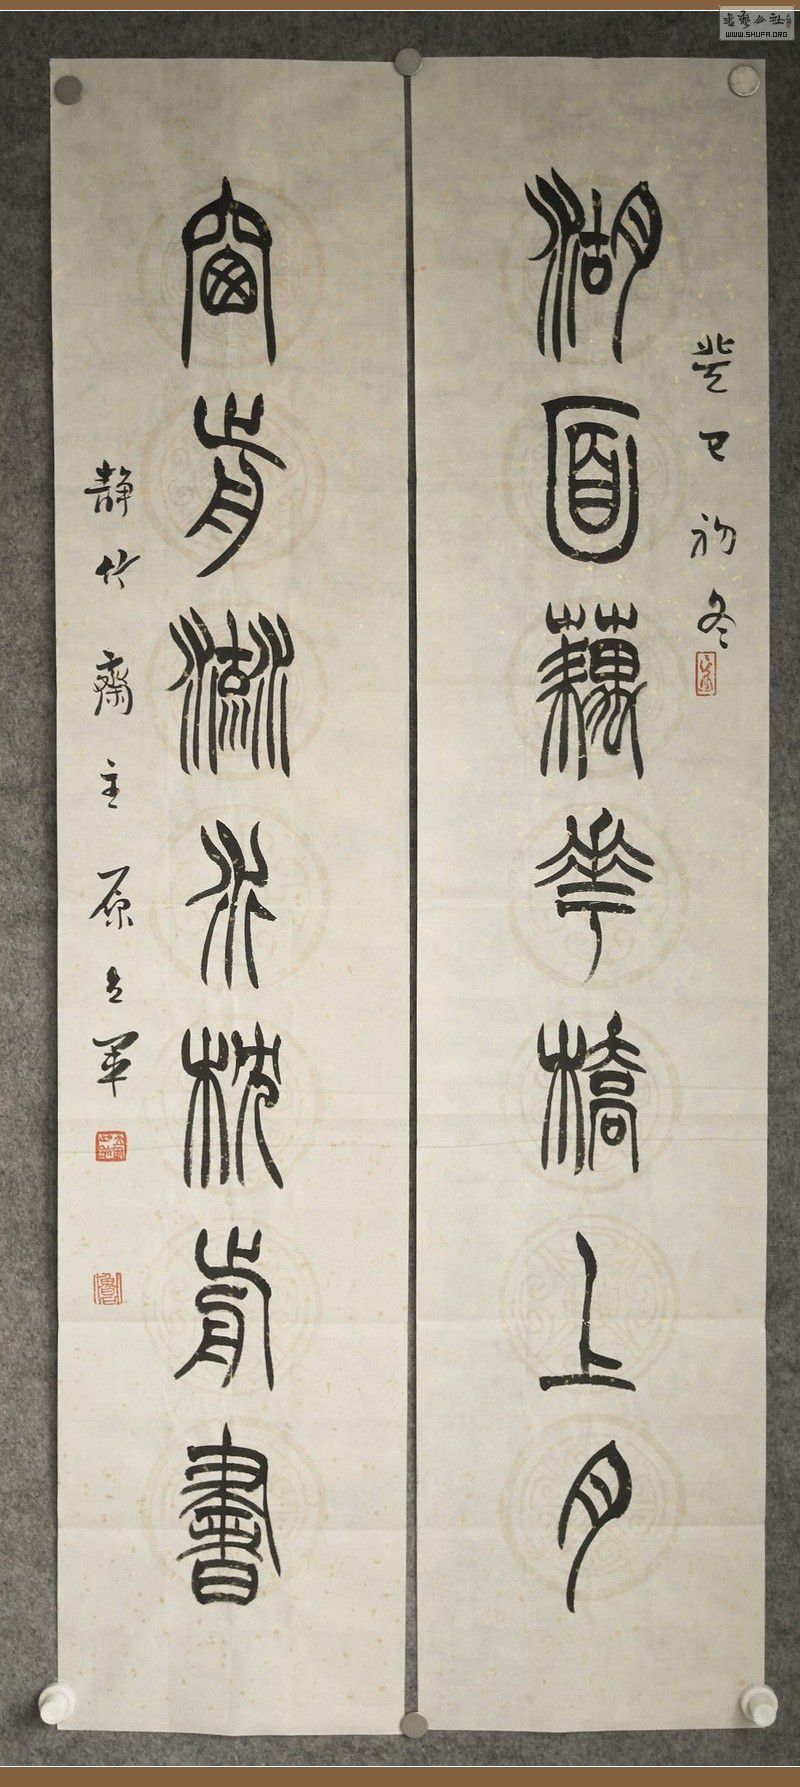 癸巳初冬
湖面藕花橋上月
窗前潮水枕前書
靜竹齋主原立軍
書藝公社
WWW.SHUFA.ORG